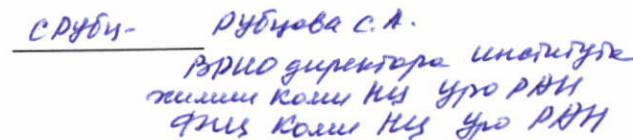 СРубц- Рубцова С.А.
ВРИО директора института
химии Коми НЦ УрО РАН
ФИЦ Коми НЦ УрО РАН